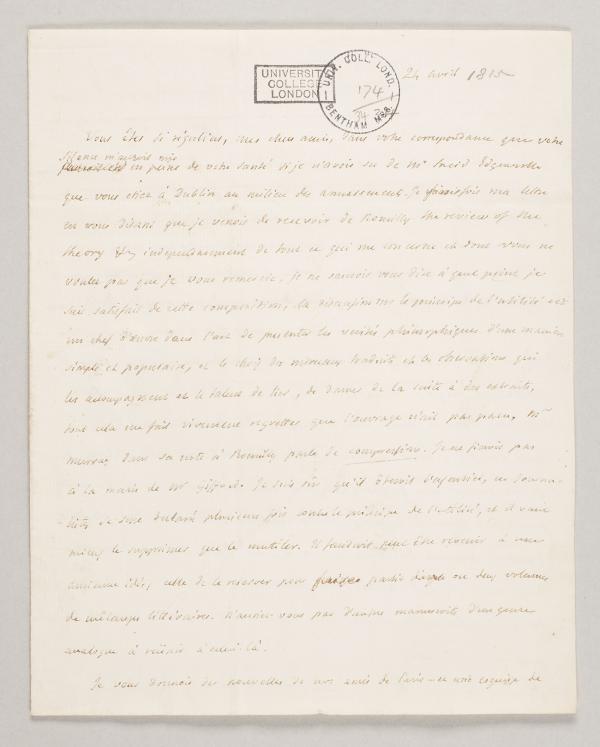 UNIVERSITY
COLLEGE
LONDON
UNIV. COLL. LOND.
174
BENTHAM MSS.
24 avril 1815
Vous êtes si régulier, mon cher ami, dans votre correspondance que votre
silence m'auroit mis
en peine de votre santé si je n'avois su de Mr
que vous étiez à Dublin au milieu des amusements. Je finissois ma lettre
en vous disant que je venois de recevoir de Romilly the review of the
theory &c independamment de tout ce qui me concerne et dont vous ne
voulez pas que je vous remercie. Je ne saurois vous dire à quel point je
suis satisfait de cette composition, la discussion sur le principe de l'utilité est
un chef d'œuvre dans l'art de presenter les verités philosophiques d'une manière
simple et populaire, et le choix des morceaux traduits et les observations qui
les accompagnent et le talent de lier, de donner de la suite à des extraits,
tout cela me fait vivement regretter que l'ouvrage n'ait pas paru, Mr
Murray dans sa note à Romilly parle de compression. Je ne finirois pas
à la merci de Mr Gifford. Je suis sûr qu'il ôteroit l'essentiel, ce
s'est declaré plusieurs fois contre le principe de l'utilité, et il vaut
mieux le supprimer que le mutiler. Il faudroit peut être revenir à une
ancienne idée, celle de le reserver pour faire partie d'un ou deux volumes
de mêlanges littéraires. N'auriez vous pas d'autres manuscrits d'un genre
analogue à réunir à celui-là.
Je vous donnois des nouvelles de nos amis de Paris – et une esquisse de